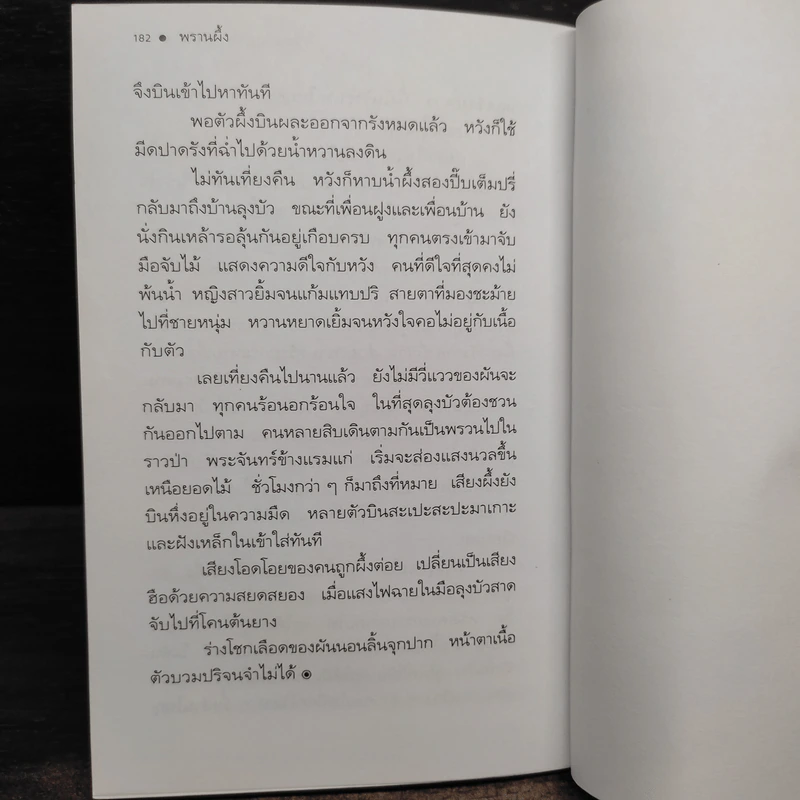 182 ● พรานผึ้ง
จึงบินเข้าไปหาทันที
พอตัวผึ้งบินผละออกจากรังหมดแล้ว หวังก็ใช้
มีดปาดรังที่ฉ่ำไปด้วยน้ำหวานลงดิน
ไม่ทันเที่ยงคืน หวังก็หาบน้ำผึ้งสองปี๊บเต็มปรี่
กลับมาถึงบ้านลุงบัว ขณะที่เพื่อนฝูงและเพื่อนบ้าน ยัง
นั่งกินเหล้ารอลุ้นกันอยู่เกือบครบ ทุกคนตรงเข้ามาจับ
มือจับไม้ แสดงความดีใจกับหวัง คนที่ดีใจที่สุดคงไม่
พ้นน้ำ หญิงสาวยิ้มจนแก้มแทบปริ สายตาที่มองชะม้าย
ไปที่ชายหนุ่ม หวานหยาดเยิ้มจนหวังใจคอไม่อยู่กับเนื้อ
กับตัว
เลยเที่ยงคืนไปนานแล้ว ยังไม่มีวี่แววของผันจะ
กลับมา ทุกคนร้อนอกร้อนใจ ในที่สุดลุงบัวต้องชวน
กันออกไปตาม คนหลายสิบเดินตามกันเป็นพรวนไปใน
ราวป่า พระจันทร์ข้างแรมแก่ เริ่มจะส่องแสงนวลขึ้น
เหนือยอดไม้ ชั่วโมงกว่า ๆ ก็มาถึงที่หมาย เสียงผึ้งยัง
บินหึ่งอยู่ในความมืด หลายตัวบินสะเปะสะปะมาเกาะ
และฝังเหล็กในเข้าใส่ทันที
เสียงโอดโอยของคนถูกผึ้งต่อย เปลี่ยนเป็นเสียง
ฮือด้วยความสยดสยอง เมื่อแสงไฟฉายในมือลุงบัวสาด
จับไปที่โคนต้นยาง
ร่างโชกเลือดของผันนอนลิ้นจุกปาก หน้าตาเนื้อ
ตัวบวมปริจนจำไม่ได้ ◉